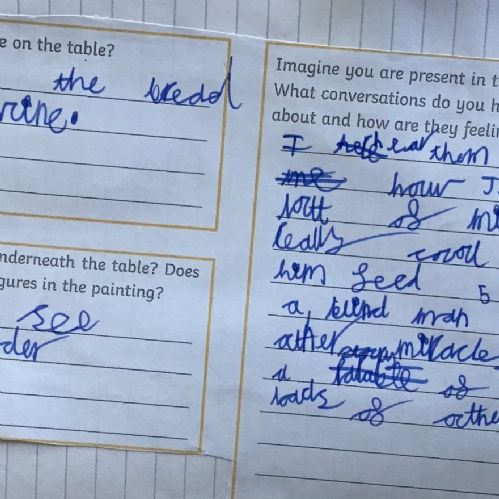 e on the table?
the bredd
rine.
nderneath the table? Does
gures in the painting?
see
der
Imagine you are present in t
What conversations do you h
about and how are they feelin
I them
me hour J
of mi
really
him feed 5
a blind man
other miracle
a of
loads of othe